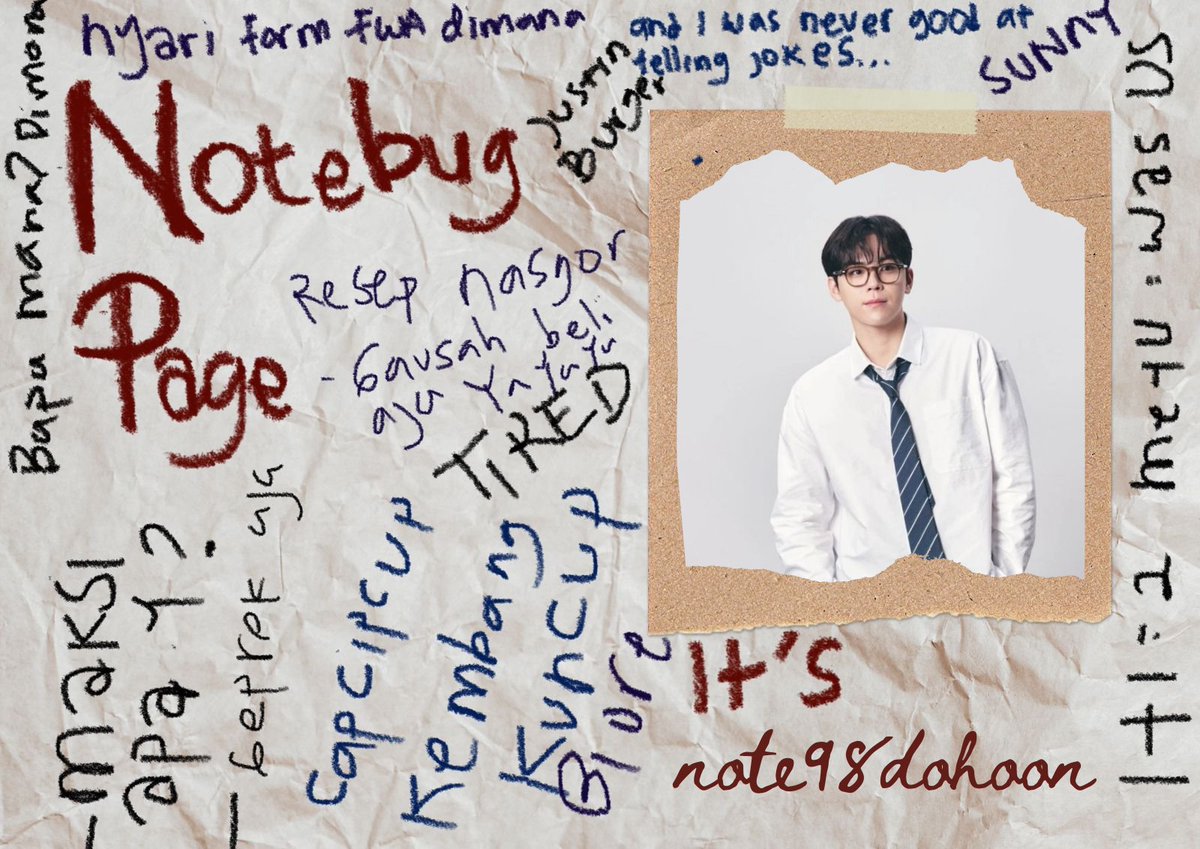 nyari form FWA dimana
and I was never good at
telling jokes...
SUNNY
Justin
Burger
Notebug
Page
Bapu mana? Dimana
Resep nasgor
- Gausah beli
aja YaYaYa
TIRED
- maksi
apa Y?
- Geprek aja
Capcipcup
Kembang
Kuncup
Biore
It's
note98dohoon
1+1=2 me+u=was US